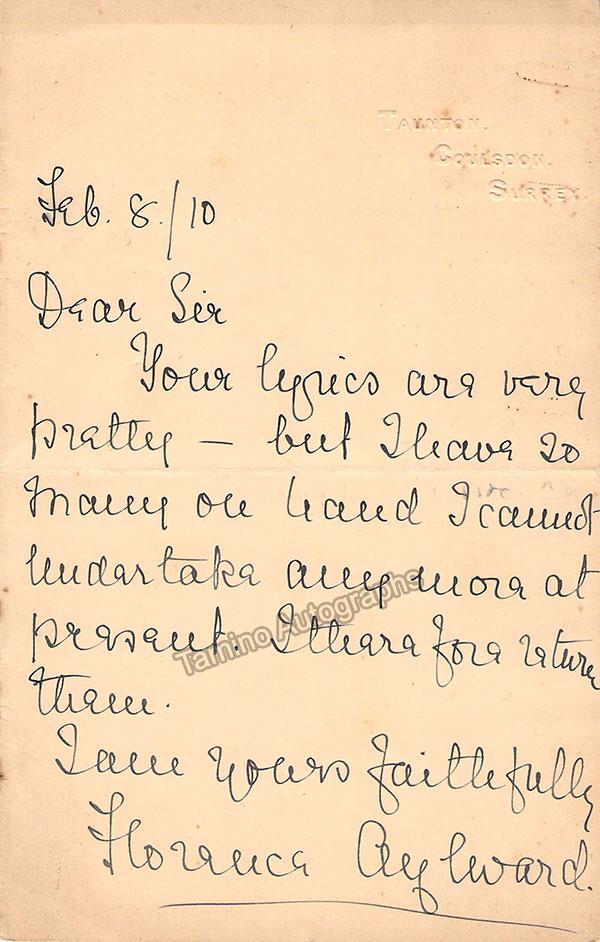 TAUNTON.
COULSDON.
SURREY.
Feb. 8./10
Dear Sir
Your lyrics are very
pretty — but I have so
many on hand I cannot
undertake any more at
present. I therefore return
them.
I am yours faithfully
Florence Aylward.
Tamino Autographs